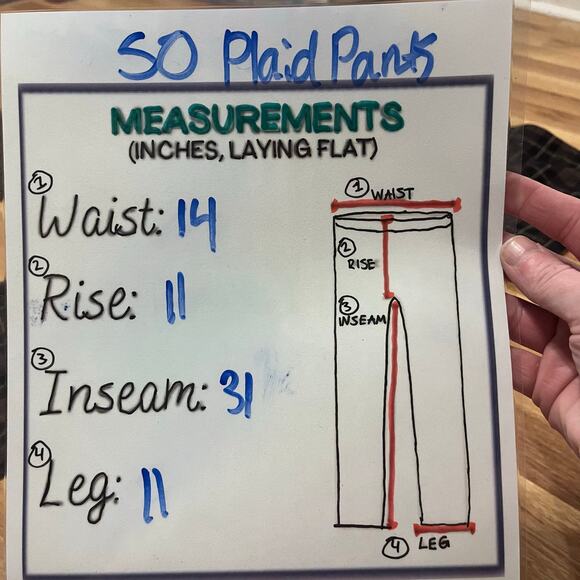 SO Plaid Pants
MEASUREMENTS
(INCHES, LAYING FLAT)
1
Waist: 14
2
Rise: 11
3
Inseam: 31
4
Leg: 11
1 WAIST
2
RISE
3
INSEAM
4 LEG